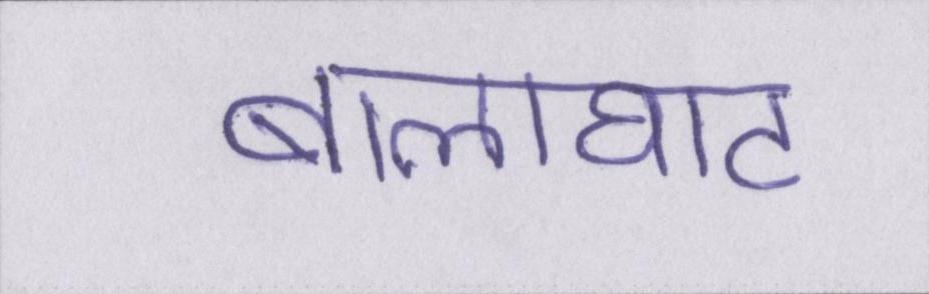 बालाघाट